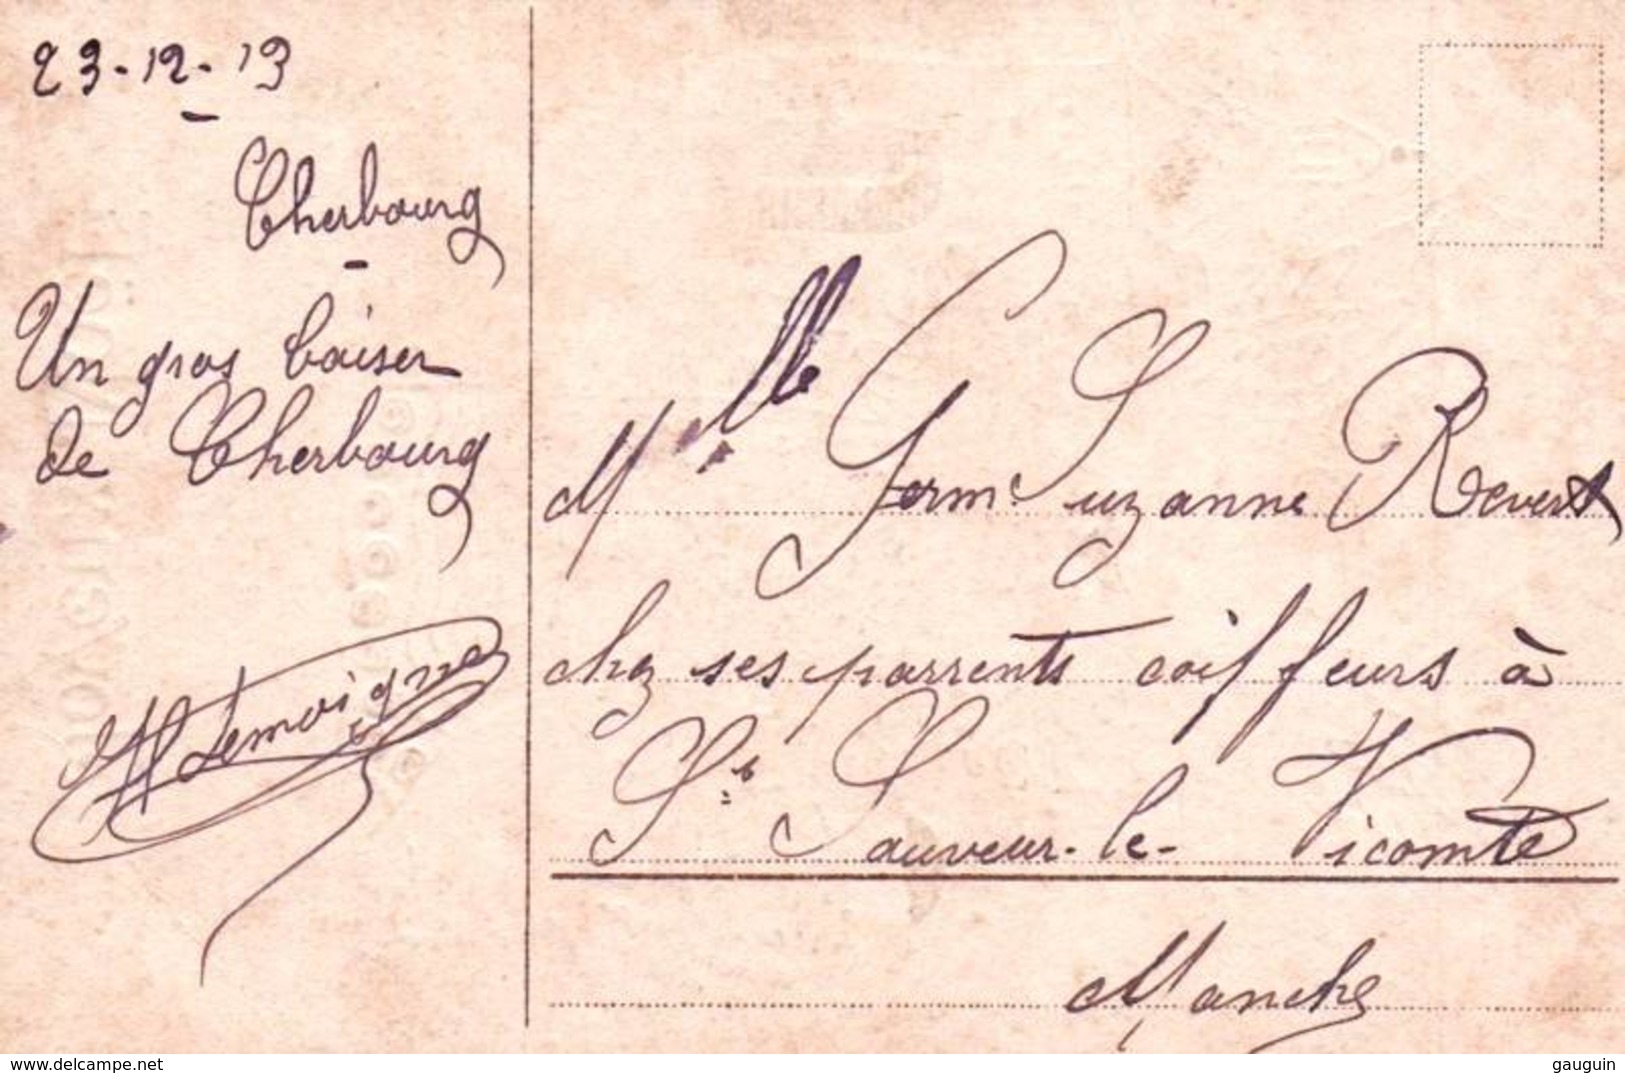 23-12-13
Cherbourg
Un gros baiser
de Cherbourg
Lemoigne
Mlle Germ. Suzanne Revert
chez ses parrents coiffeurs à
St. Sauveur-le-Vicomte
Manche
www.delcampe.net
gauguin